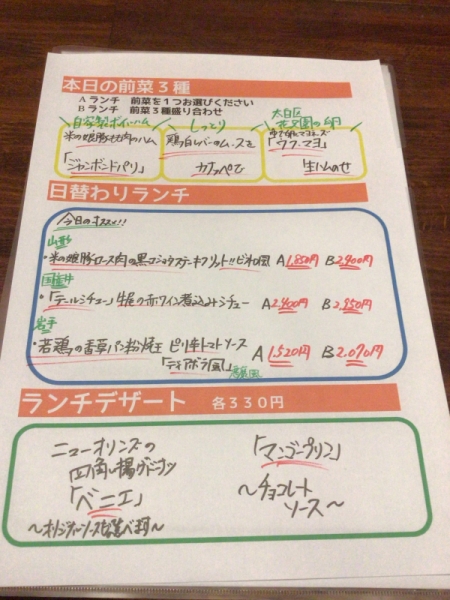 本日の前菜3種
Aランチ 前菜を1つお選びください
Bランチ 前菜3種盛り合わせ
自家製ボイルハム
米の娘豚もも肉のハム
「ジャンボンドパリ」
しっとり
鶏白レバーのムースを
カナッペで
太白区
花兄園の卵
「ウフ・マヨ」
生ハムのせ
日替わりランチ
今日のオススメ!!
山形
・米の娘豚ロース肉の黒コショウステーキフリット!! A 1,850円 B 2,400円
国産牛
・「テールシチュー」牛尾の赤ワイン煮込みシチュー A 2,400円 B 2,950円
岩手
・若鶏の香草パン粉焼 ピリ辛トマトソース A 1,520円 B 2,070円
「ディアボラ風」
ランチデザート 各330円
ニューオリンズの
四角い揚げドーナツ
「ベニエ」
「マンゴープリン」
〜チョコレート
ソース〜